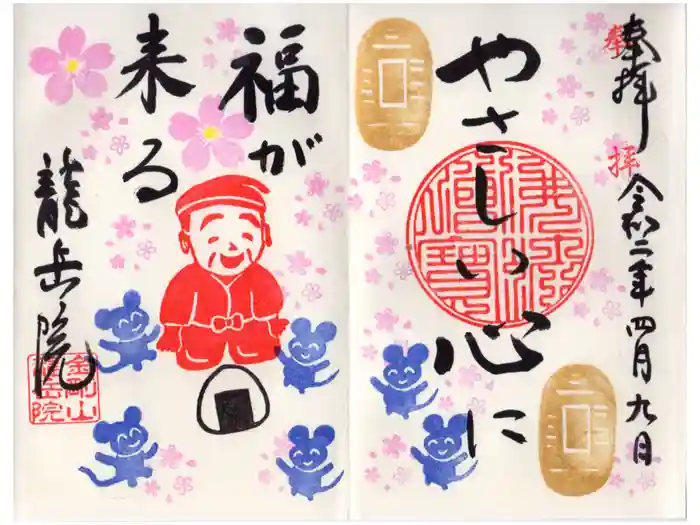 奉拝
奉
拝
令和二年四月九日
やさしい心に
佛法僧寶
福が
来る
龍岳院
金剛山
龍岳院